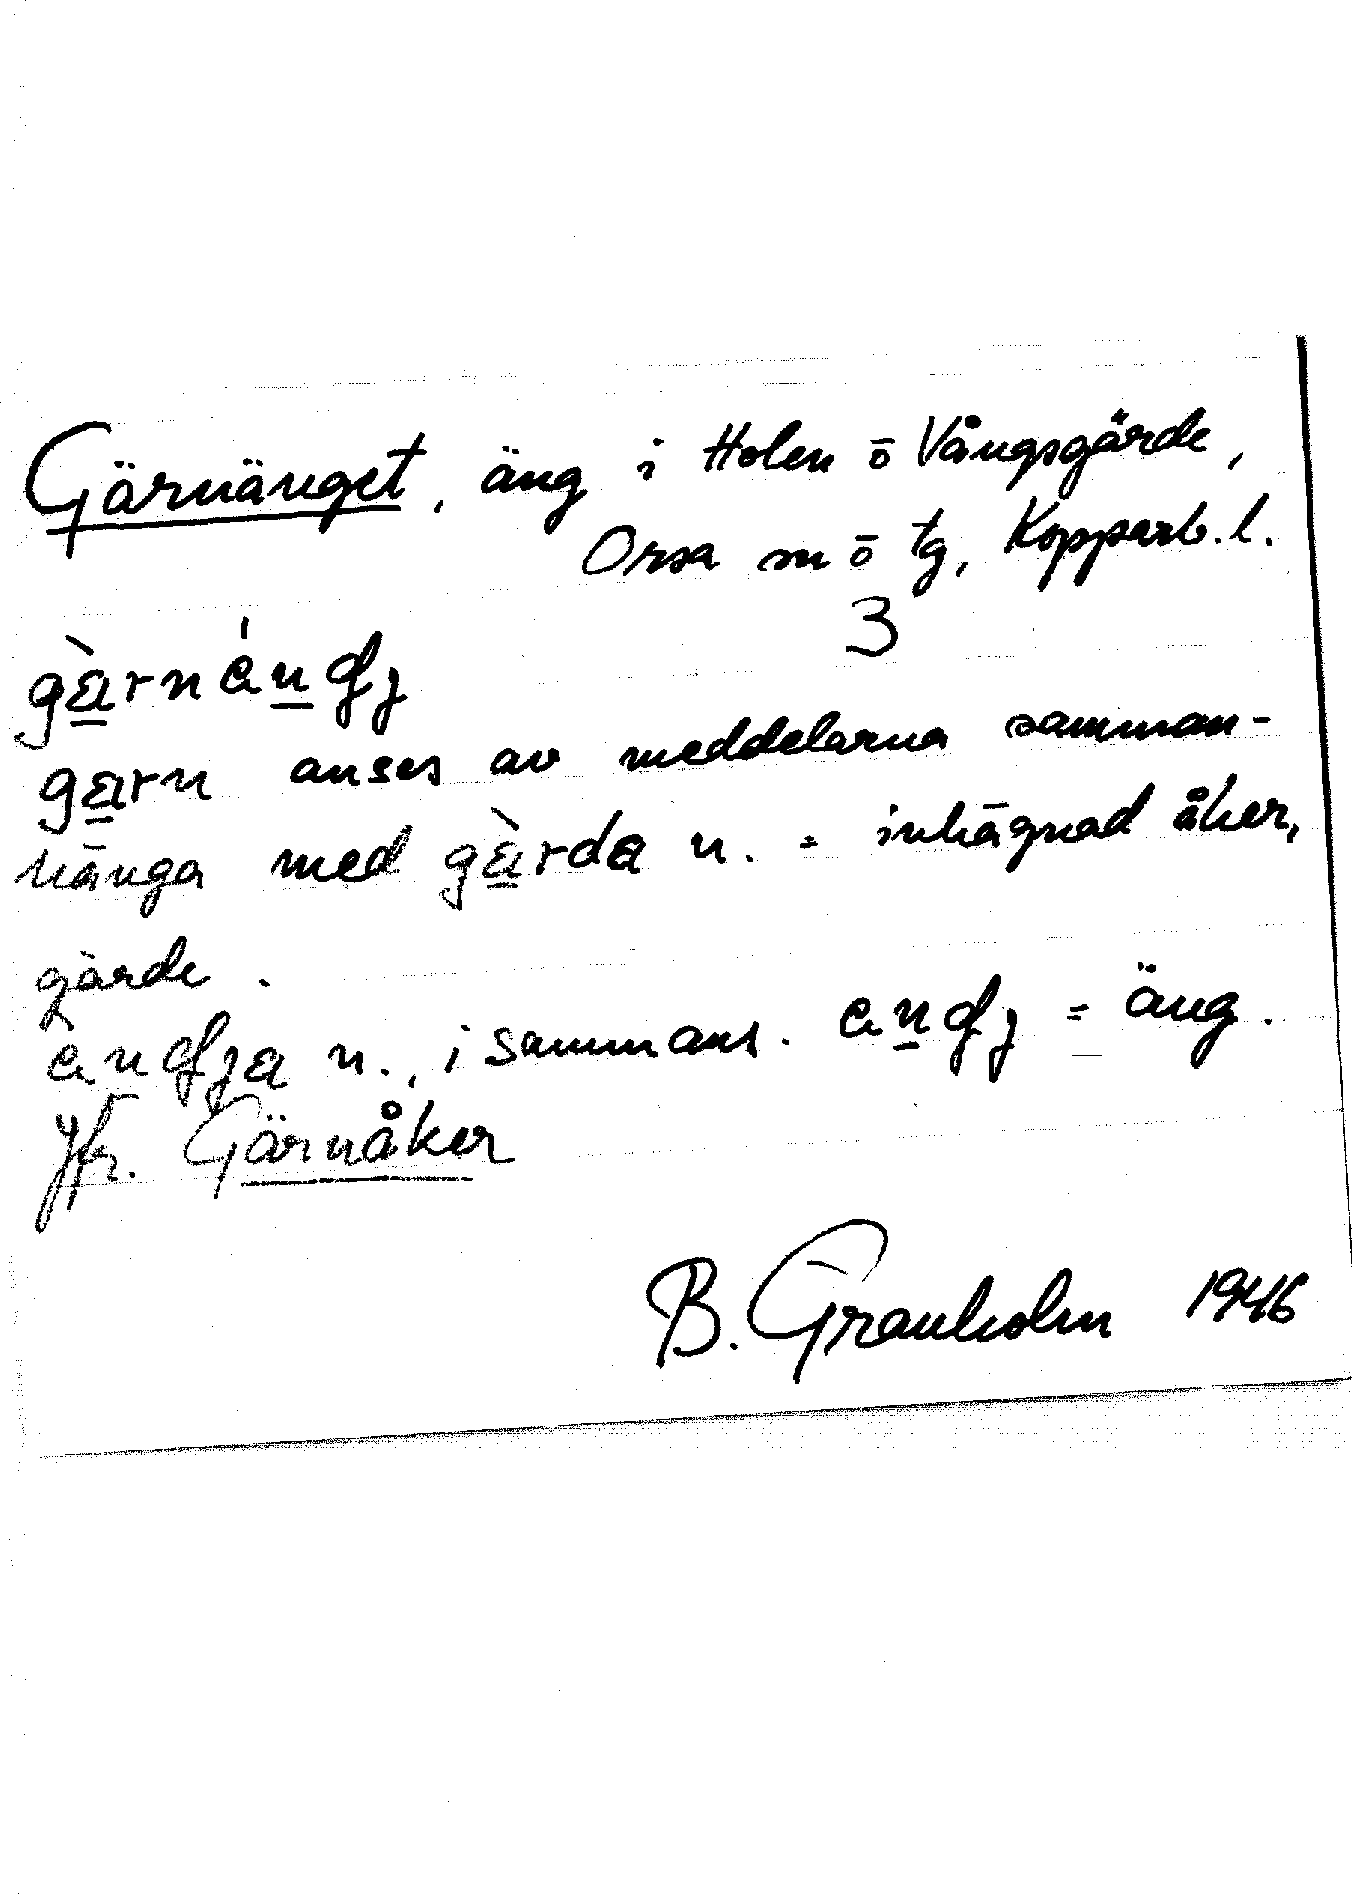 Gärnänget, äng i Holen ō Vångsgärde,
Orsa sn ō tg, Kopparb. l.
3
gàrnándʒ
garn anses av meddelarna samman-
hänga med gàrda n. = inhägnad åker,
gärde.
andʒa n., i sammans. andʒ = äng.
Jfr. Gärnåker
B. Granholm 1946